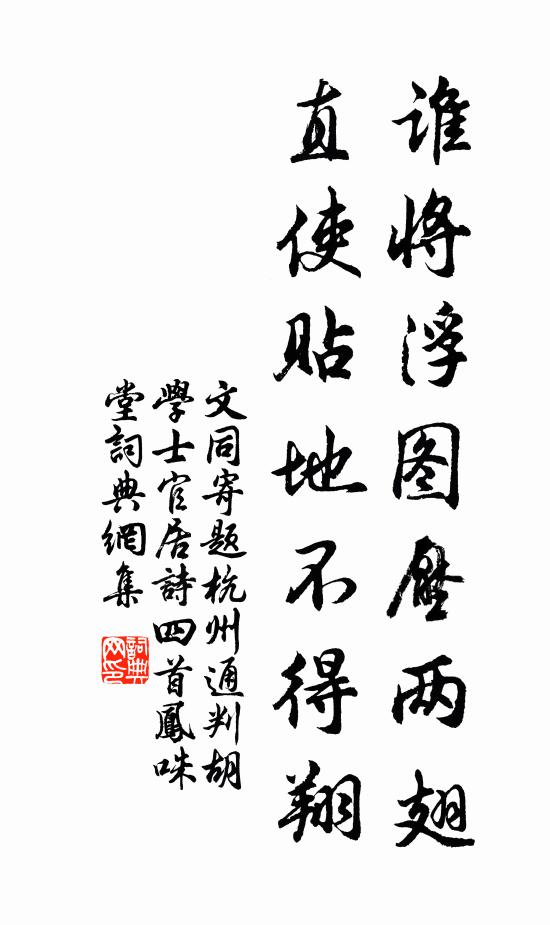 谁将浮图压两翅
直使贴地不得翔
文同寄题杭州通判胡
學士官居詩四首鳳咮
堂詞典網集
詞典网印